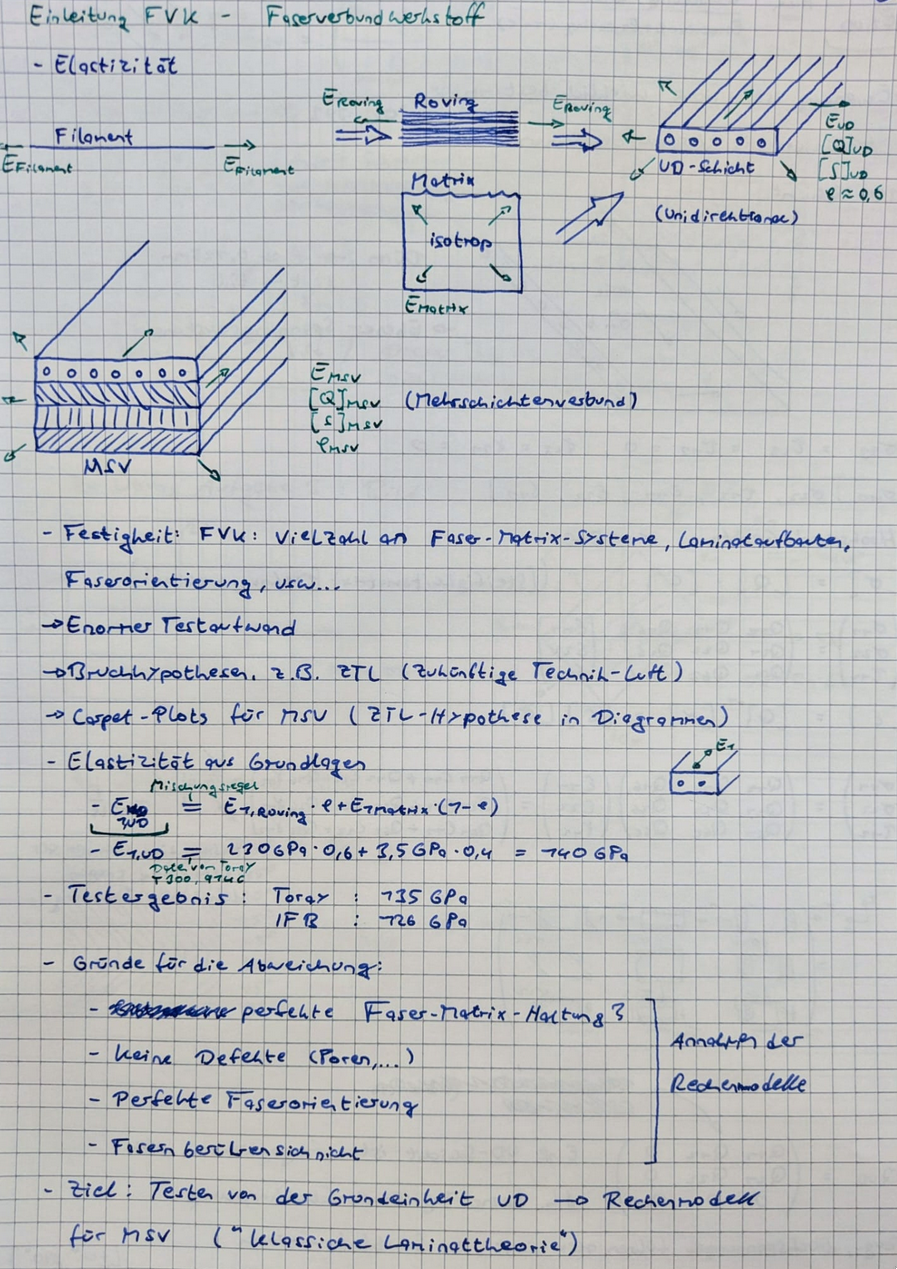 Einleitung FVK - Faserverbundwerkstoff
- Elastizität
E Roving Roving E Roving
Filament
E Filament E Filament
E UD
[Q] UD
[S] UD
φ ≈ 0,6
UD-Schicht
(Unidirektional)
Matrix
isotrop
E Matrix
E MSV
[Q] MSV (Mehrschichtenverbund)
[S] MSV
φ MSV
MSV
- Festigkeit: FVK: Vielzahl an Faser-Matrix-Systeme, Laminataufbauten,
Faserorientierung, usw...
→ Enormer Testaufwand
→ Bruchhypothesen, z.B. ZTL (Zukünftige Technik-Luft)
→ Carpet-Plots für MSV (ZTL-Hypothese in Diagrammen)
- Elastizität aus Grundlagen
E1
Mischungsregel
- E 1UD = E1,Roving · φ + E1Matrix · (1-φ)
- E1,UD = 230GPa · 0,6 + 3,5GPa · 0,4 = 140 GPa
Daten von Toray
T300, 914C
- Testergebnis: Toray : 135 GPa
IFB : 126 GPa
- Gründe für die Abweichung:
- perfekte Faser-Matrix-Haftung
- keine Defekte (Poren,...)
- Perfekte Faserorientierung
- Fasern berühren sich nicht
Annahmen der
Rechenmodelle
- Ziel: Testen von der Grundeinheit UD → Rechenmodell
für MSV ("klassiche Laminattheorie")